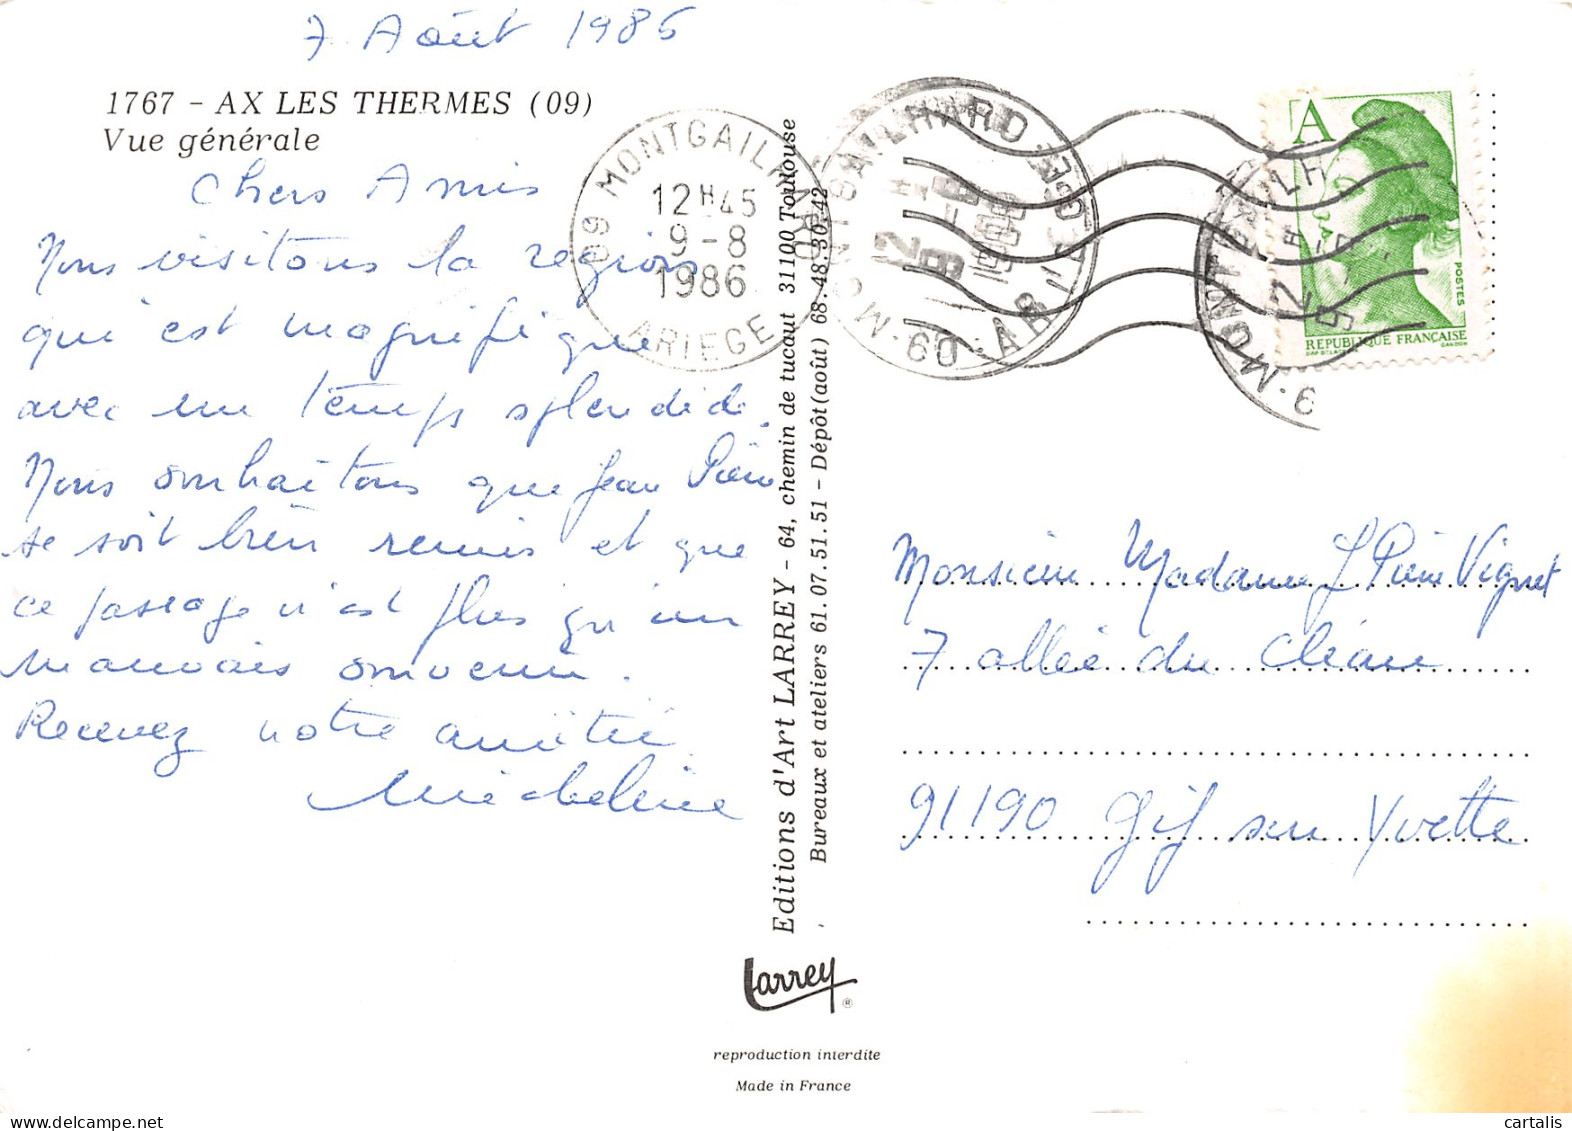 7 Août 1986
1767 - AX LES THERMES (09)
Vue générale
Chers Amis
Nous visitons la région
qui est magnifique
avec un temps splendide.
Nous souhaitons que Jean Pierre
se soit bien remis et que
ce passage n'est plus qu'un
mauvais souvenir.
Recevez notre amitié.
Micheline
09 MONTGAILHARD
12H45
9-8
1986
ARIEGE
Editions d'Art LARREY - 64, chemin de tucaut 31100 Toulouse
Bureaux et ateliers 61.07.51.51 - Dépôt (août) 68.48.30.42
Larrey ®
reproduction interdite
Made in France
A
POSTES
REPUBLIQUE FRANÇAISE
GANDON
Monsieur Madame J Pierre Vignet
7 allée du
91190 Gif sur Yvette
cartalis